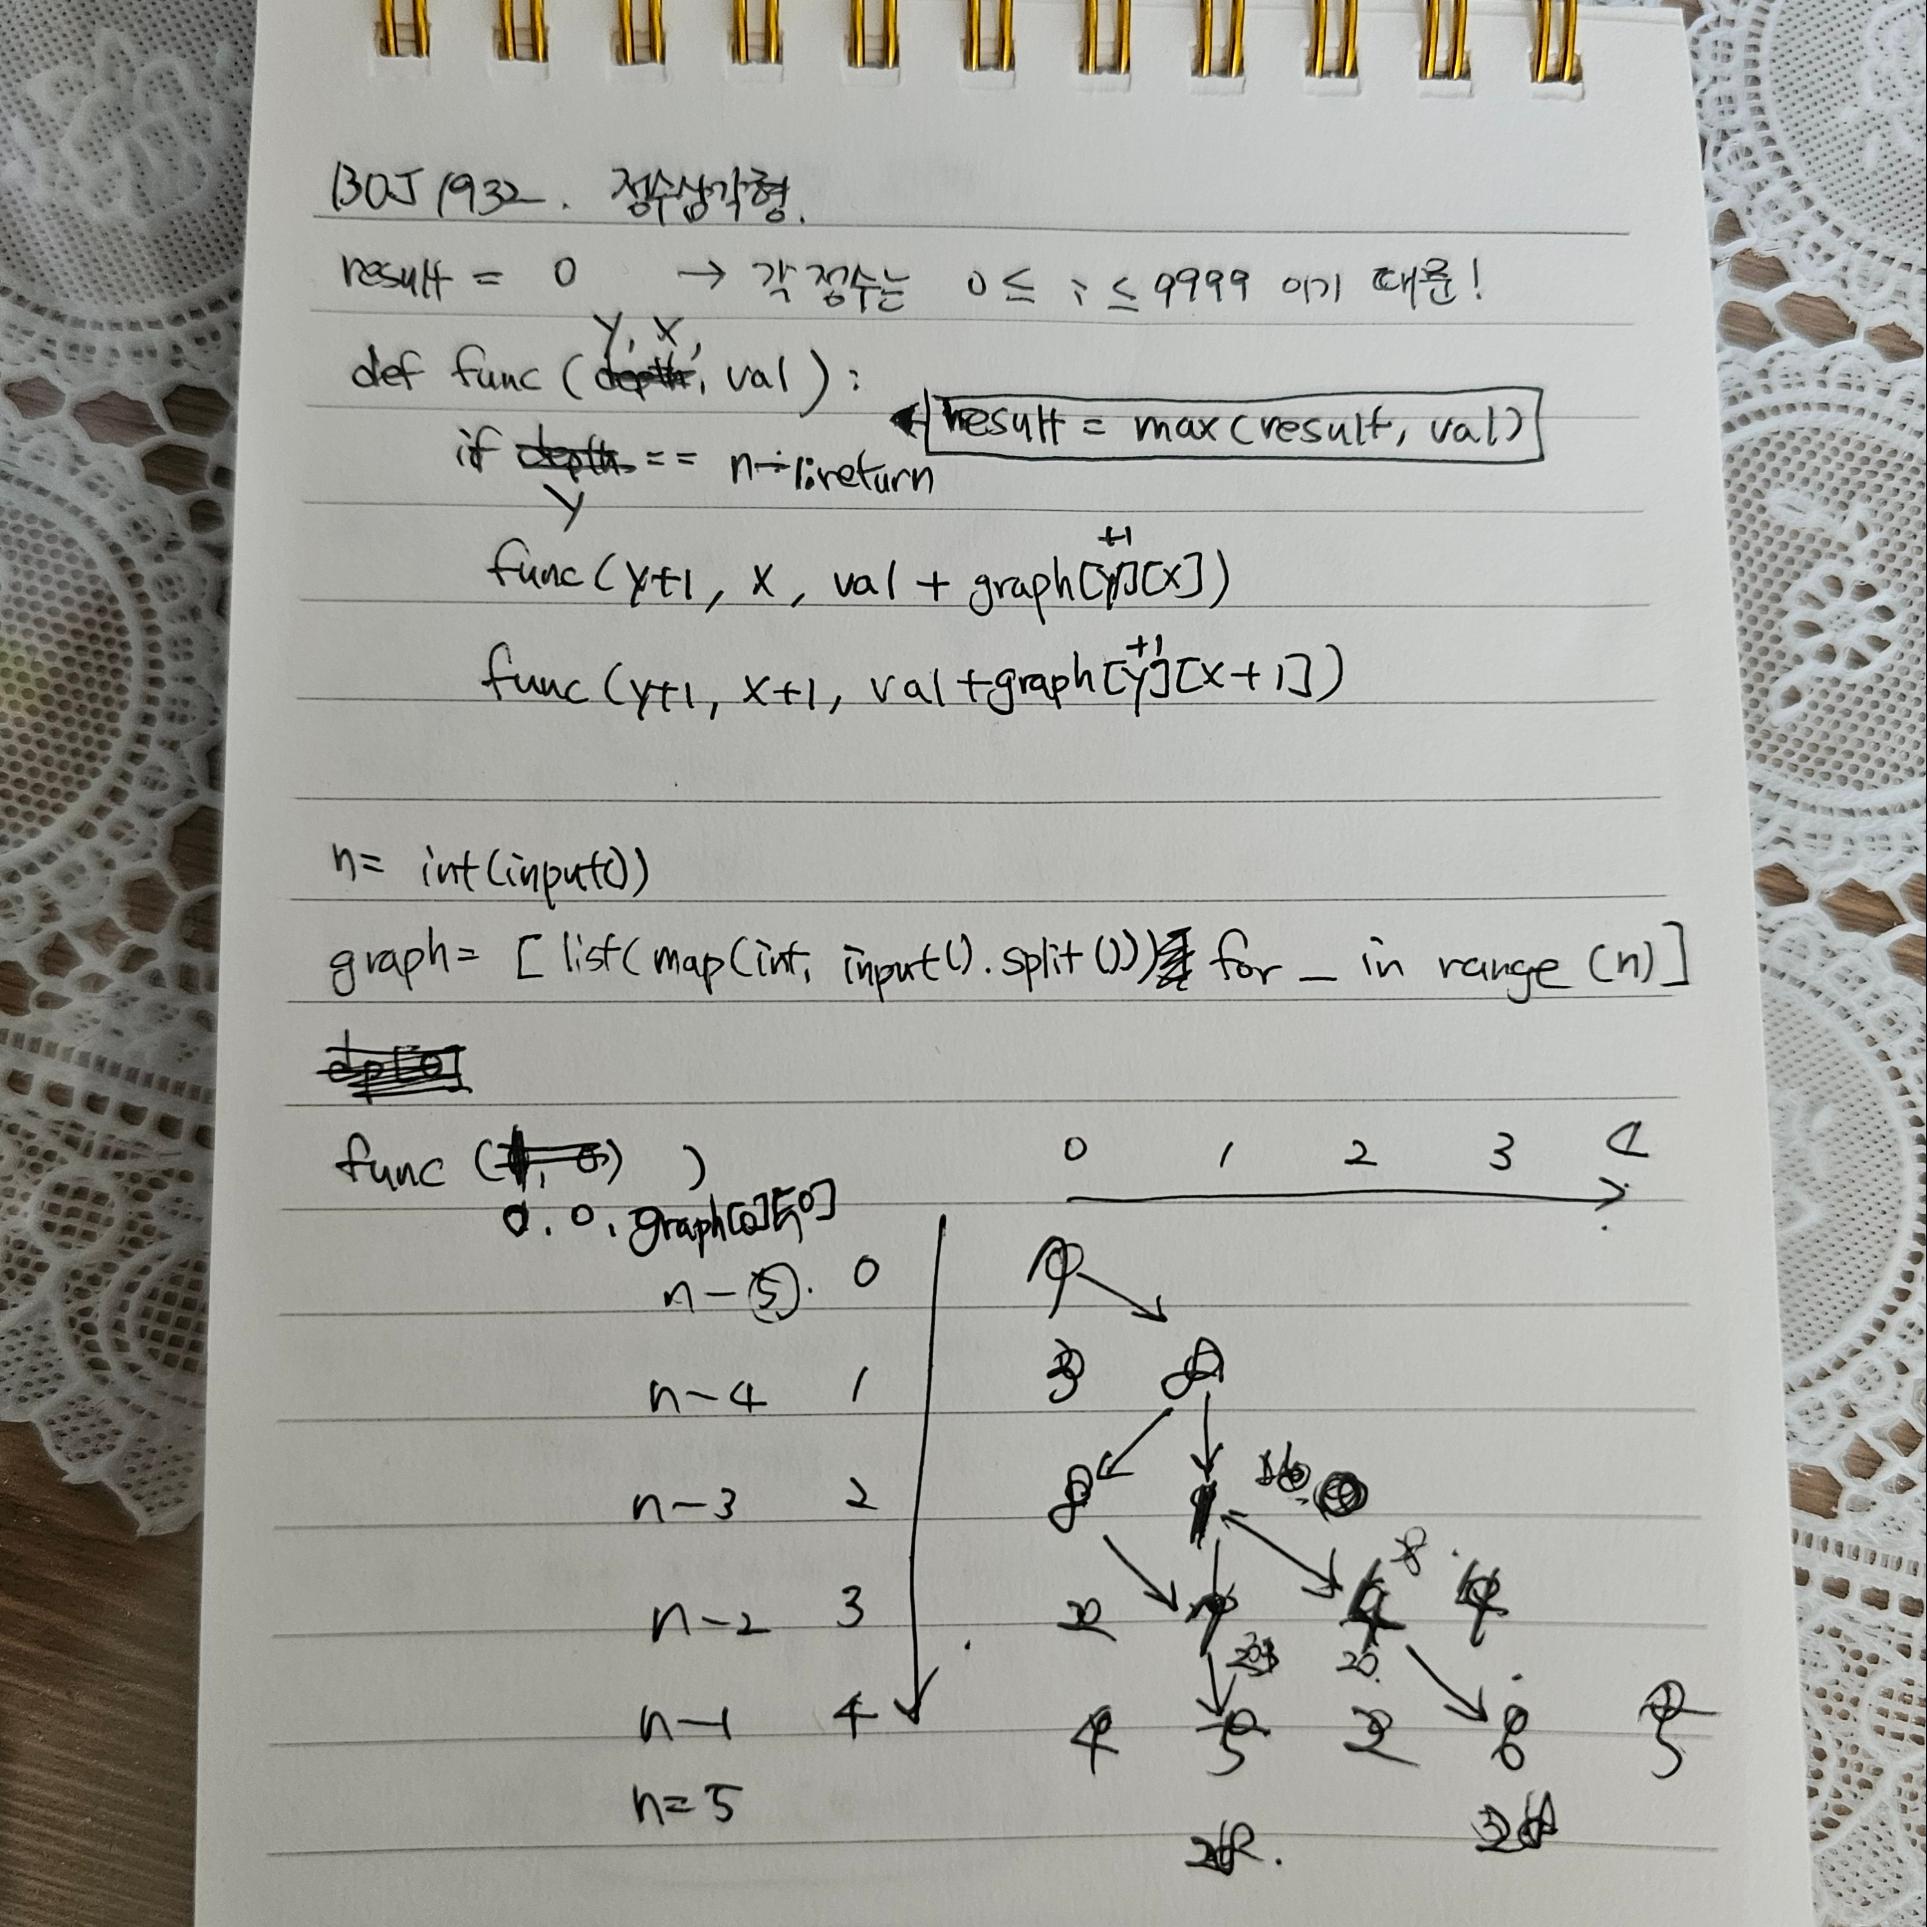 BOJ 1932. 정수삼각형.
result = 0 → 각 정수는 0 ≤ i ≤ 9999 이기 때문!
y, x,
def func (depth, val) :
result = max(result, val)
if depth == n-1:return
y
+1
func(y+1, x, val + graph[y][x])
+1
func(y+1, x+1, val+graph[y][x+1])
n= int(input())
graph= [list(map(int, input().split())) for _ in range (n)]
func ( )
0. 0. graph[0][0]
0 1 2 3 4
n-5. 0
n-4 1 3
n-3 2 8
n-2 3 2
n-1 4 4 5 2 6 5
n=5